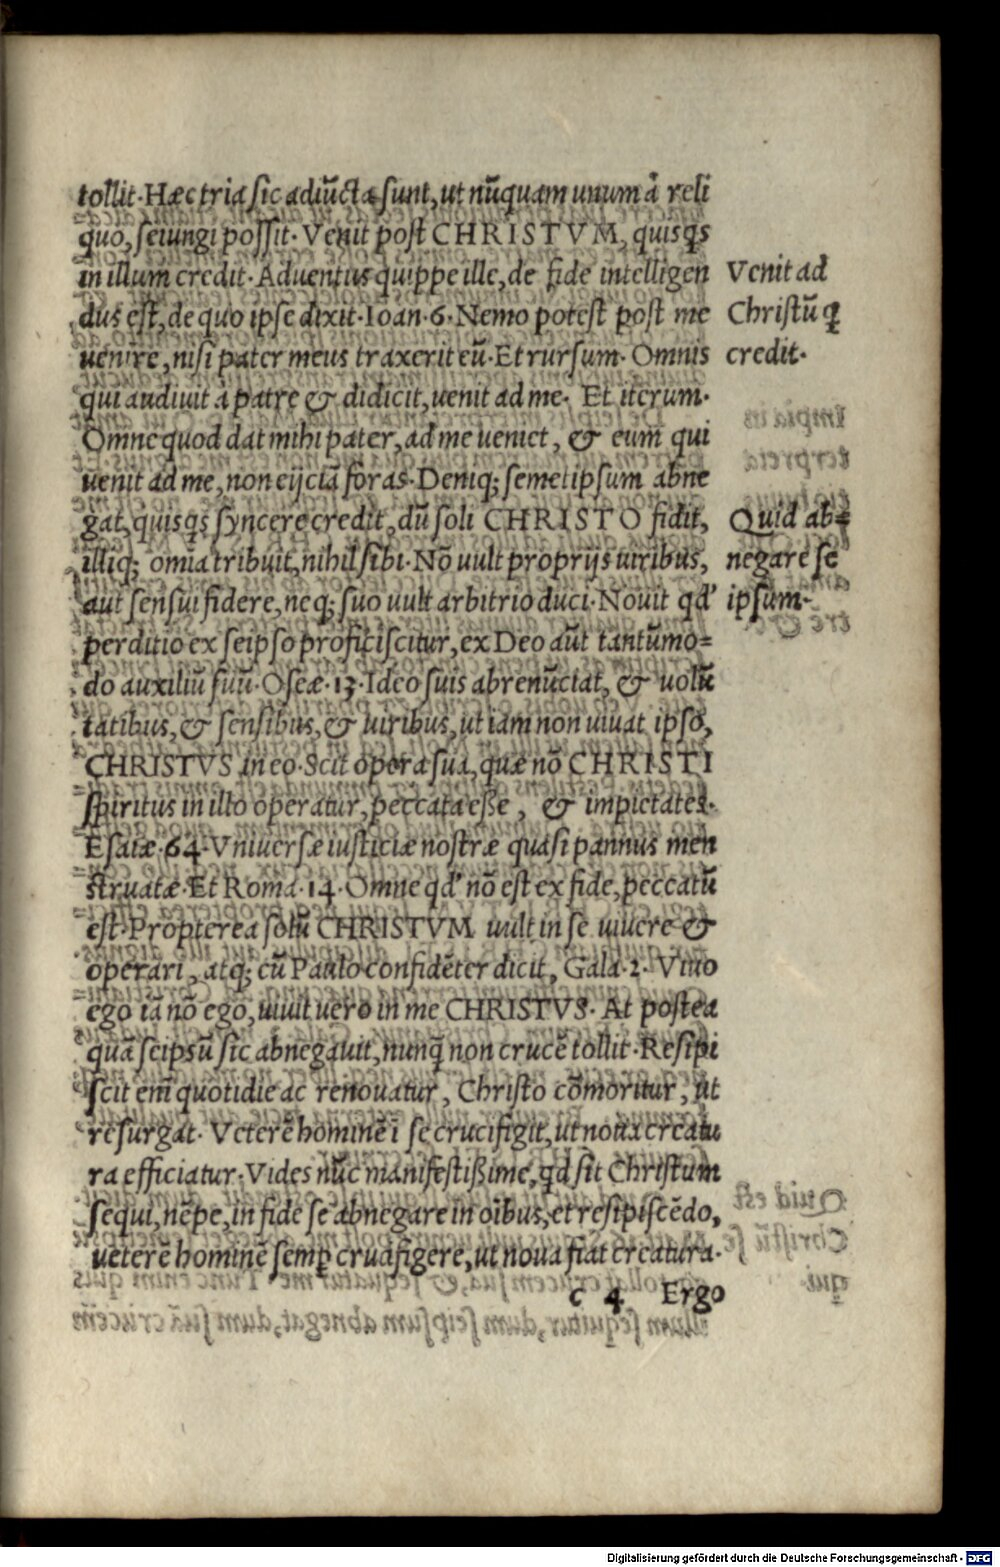 tollit·Hæc tria sic adiūcta sunt, ut nūquam unum à reli
quo, seiungi possit· Venit post CHRISTVM, quisq̃s
in illum credit·Aduentus quippe ille, de fide intelligen
dus est, de quo ipse dixit·Ioan·6·Nemo potest post me
uenire, nisi pater meus traxerit eū·Et rursum· Omnis
qui audiuit a patre & didicit, uenit ad me· Et iterum·
Omne quod dat mihi pater, ad me ueniet, & eum qui
uenit ad me, non eijciā foras·Deniq; semetipsum abne
gat, quisq̃s syncere credit, dū soli CHRISTO fidit,
illiq; omīa tribuit, nihil sibi·Nō uult proprijs uiribus,
aut sensui fidere, neq; suo uult arbitrio duci·Nouit qd'
perditio ex seipso proficiscitur, ex Deo aūt tantūmo=
do auxiliū suū·Oseæ·13·Ideo suis abrenūctat, & uolū
tatibus, & sensibus, & uiribus, ut iam non uiuat ipse,
CHRISTVS in eo·Scit opera sua, quæ nō CHRISTI
spiritus in illo operatur, peccata eße, & impietates·
Esaiæ·64·Vniuersæ iusticiæ nostræ quasi pannus men
struatæ·Et Roma·14·Omne qd' nō est ex fide, peccatū
est·Propterea solū CHRISTVM uult in se uiuere &
operari, atq; cū Paulo confidēter dicit, Gala·2·Viuo
ego iā nō ego, uiuit uero in me CHRISTVS· At postea
quā seipsū sic abnegauit, nunq̄ non crucē tollit·Resipi
scit em̄ quotidie ac renouatur, Christo cōmoritur, ut
resurgat· Veterē hominē ī se crucifigit, ut noua creatu
ra efficiatur·Vides nūc manifestißime, qd sit Christum
sequi, nēpe, in fide se abnegare in oībus, et resipiscēdo,
ueterē hominē semp̱ crucifigere, ut noua fiat creatura·
c 4 Ergo
Venit ad
Christū q̃
credit·
Quid ab=
negare se
ipsum·
Digitalisierung gefördert durch die Deutsche Forschungsgemeinschaft - DFG